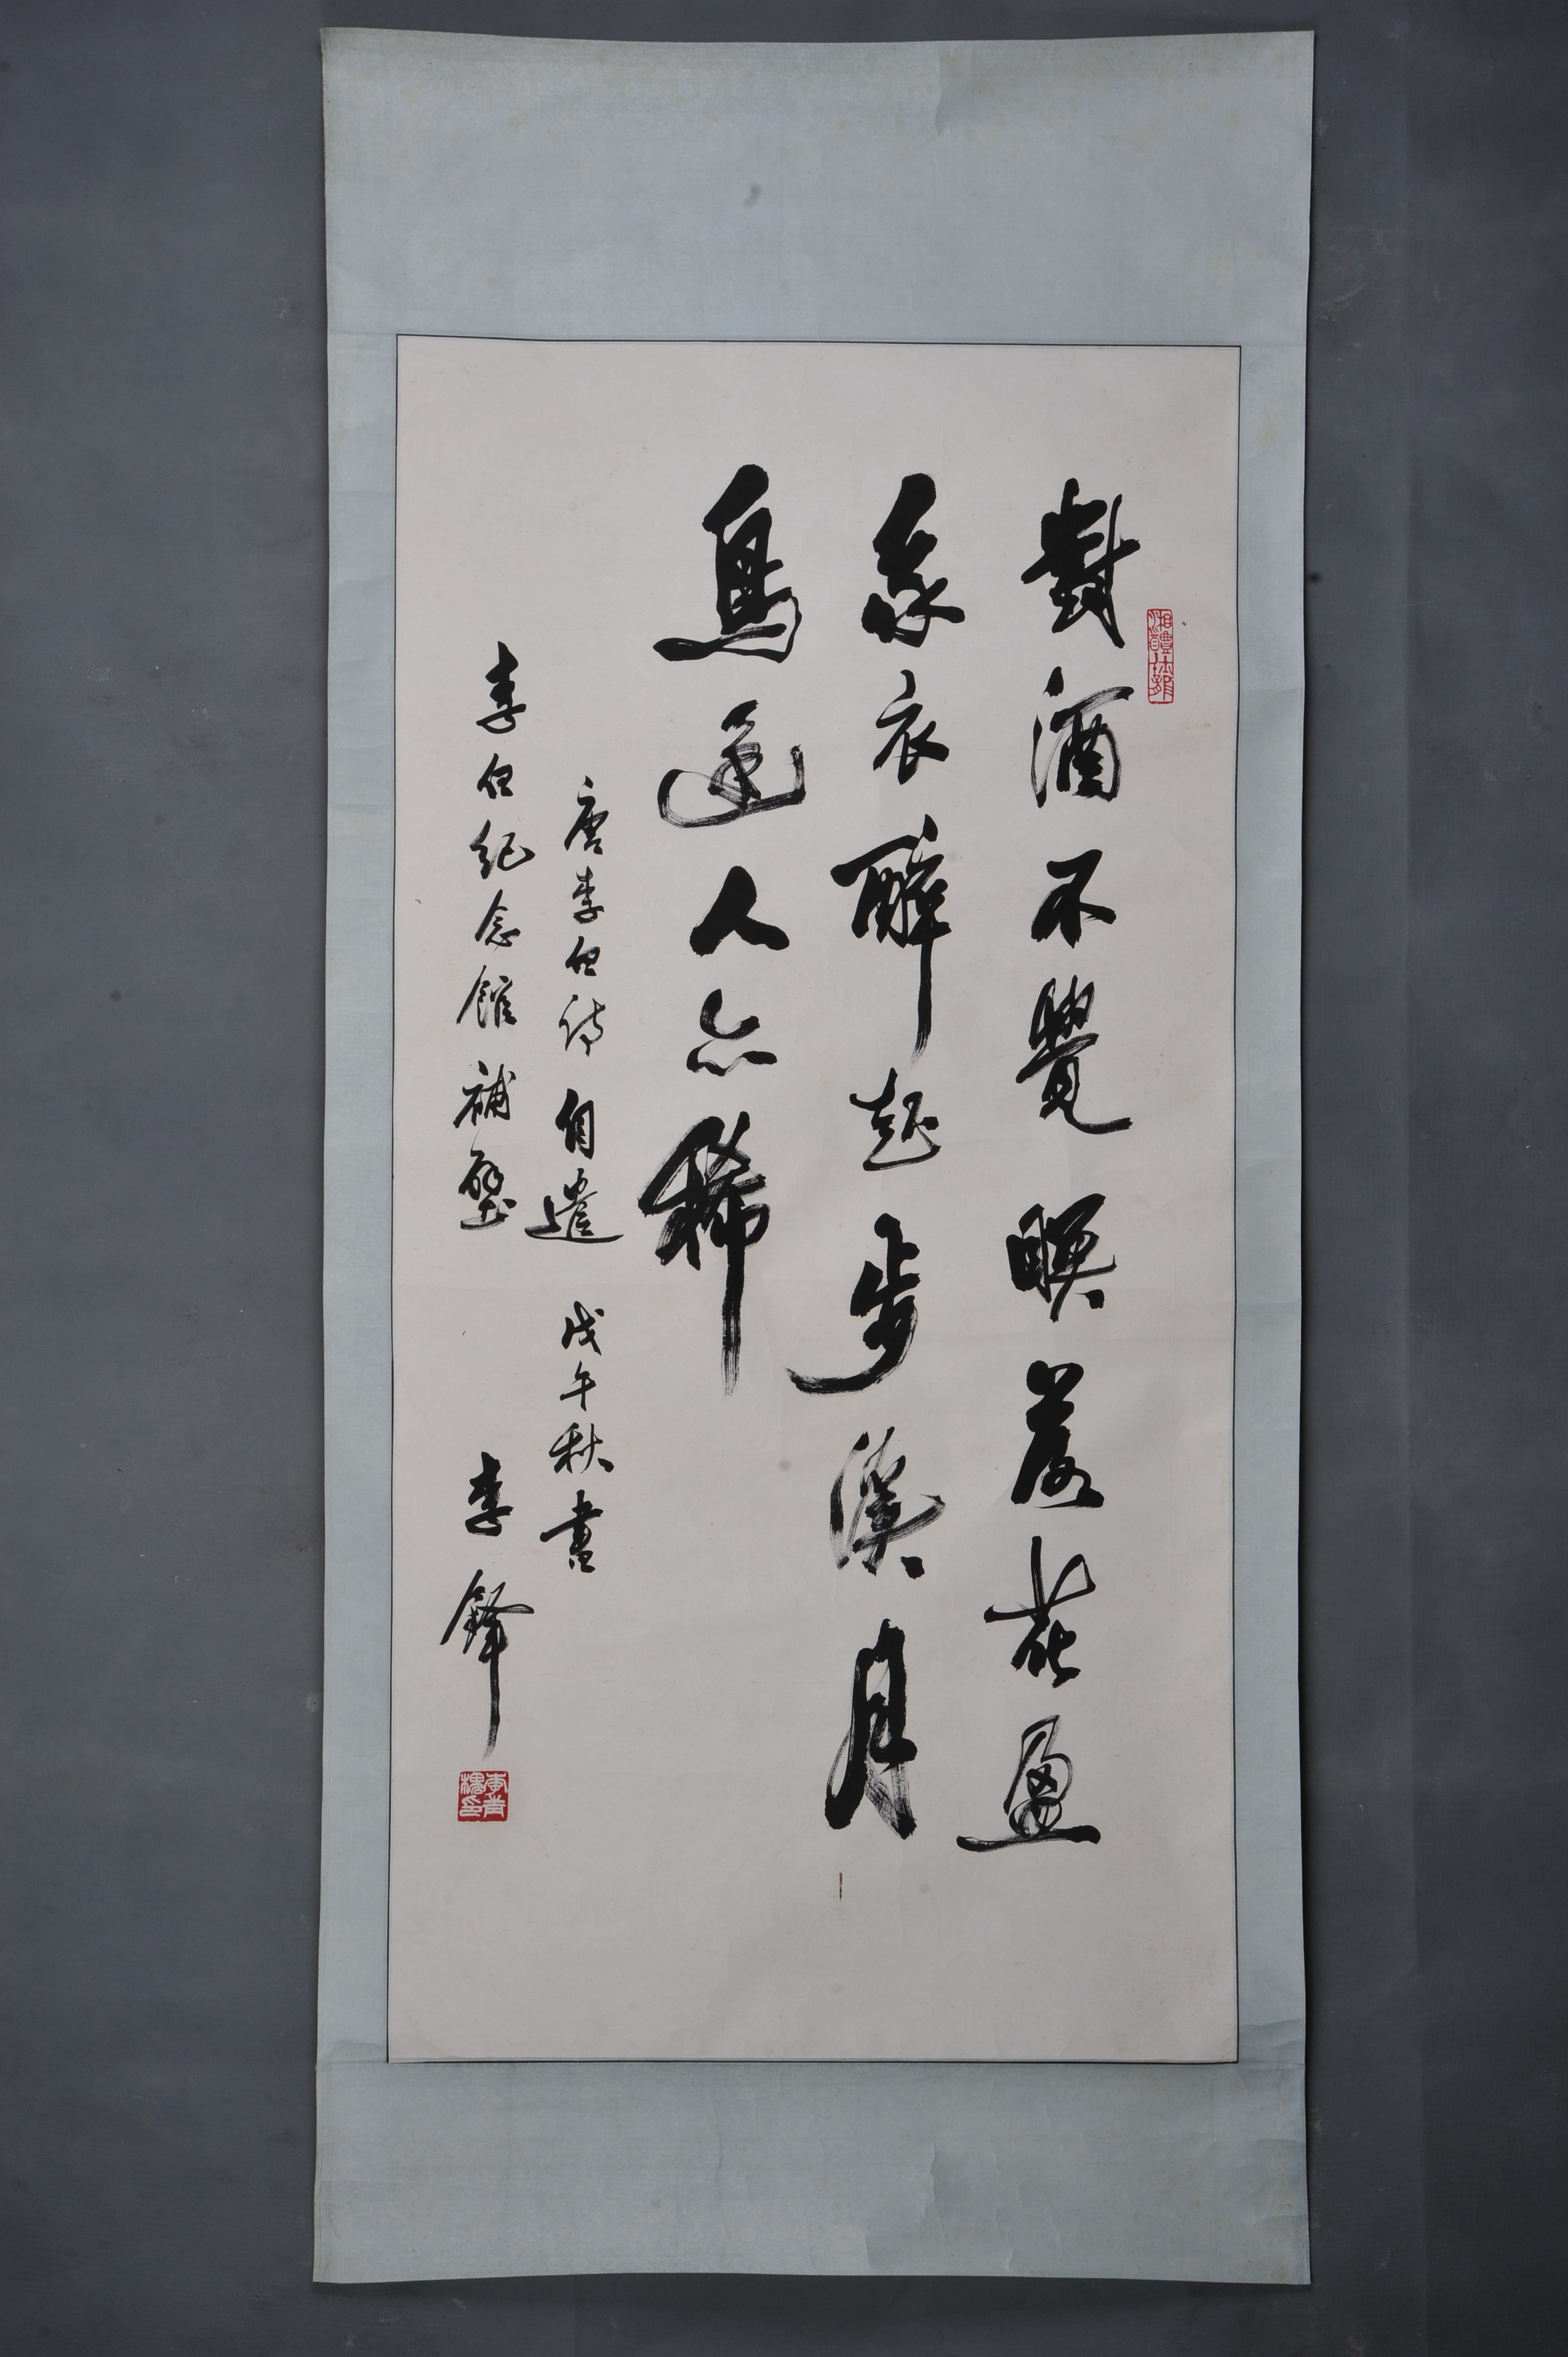 對酒不覺暝落花盈
我衣醉起步溪月
鳥還人亦稀
唐李白詩自遣 戊午秋書
李白紀念館補壁 李鐸